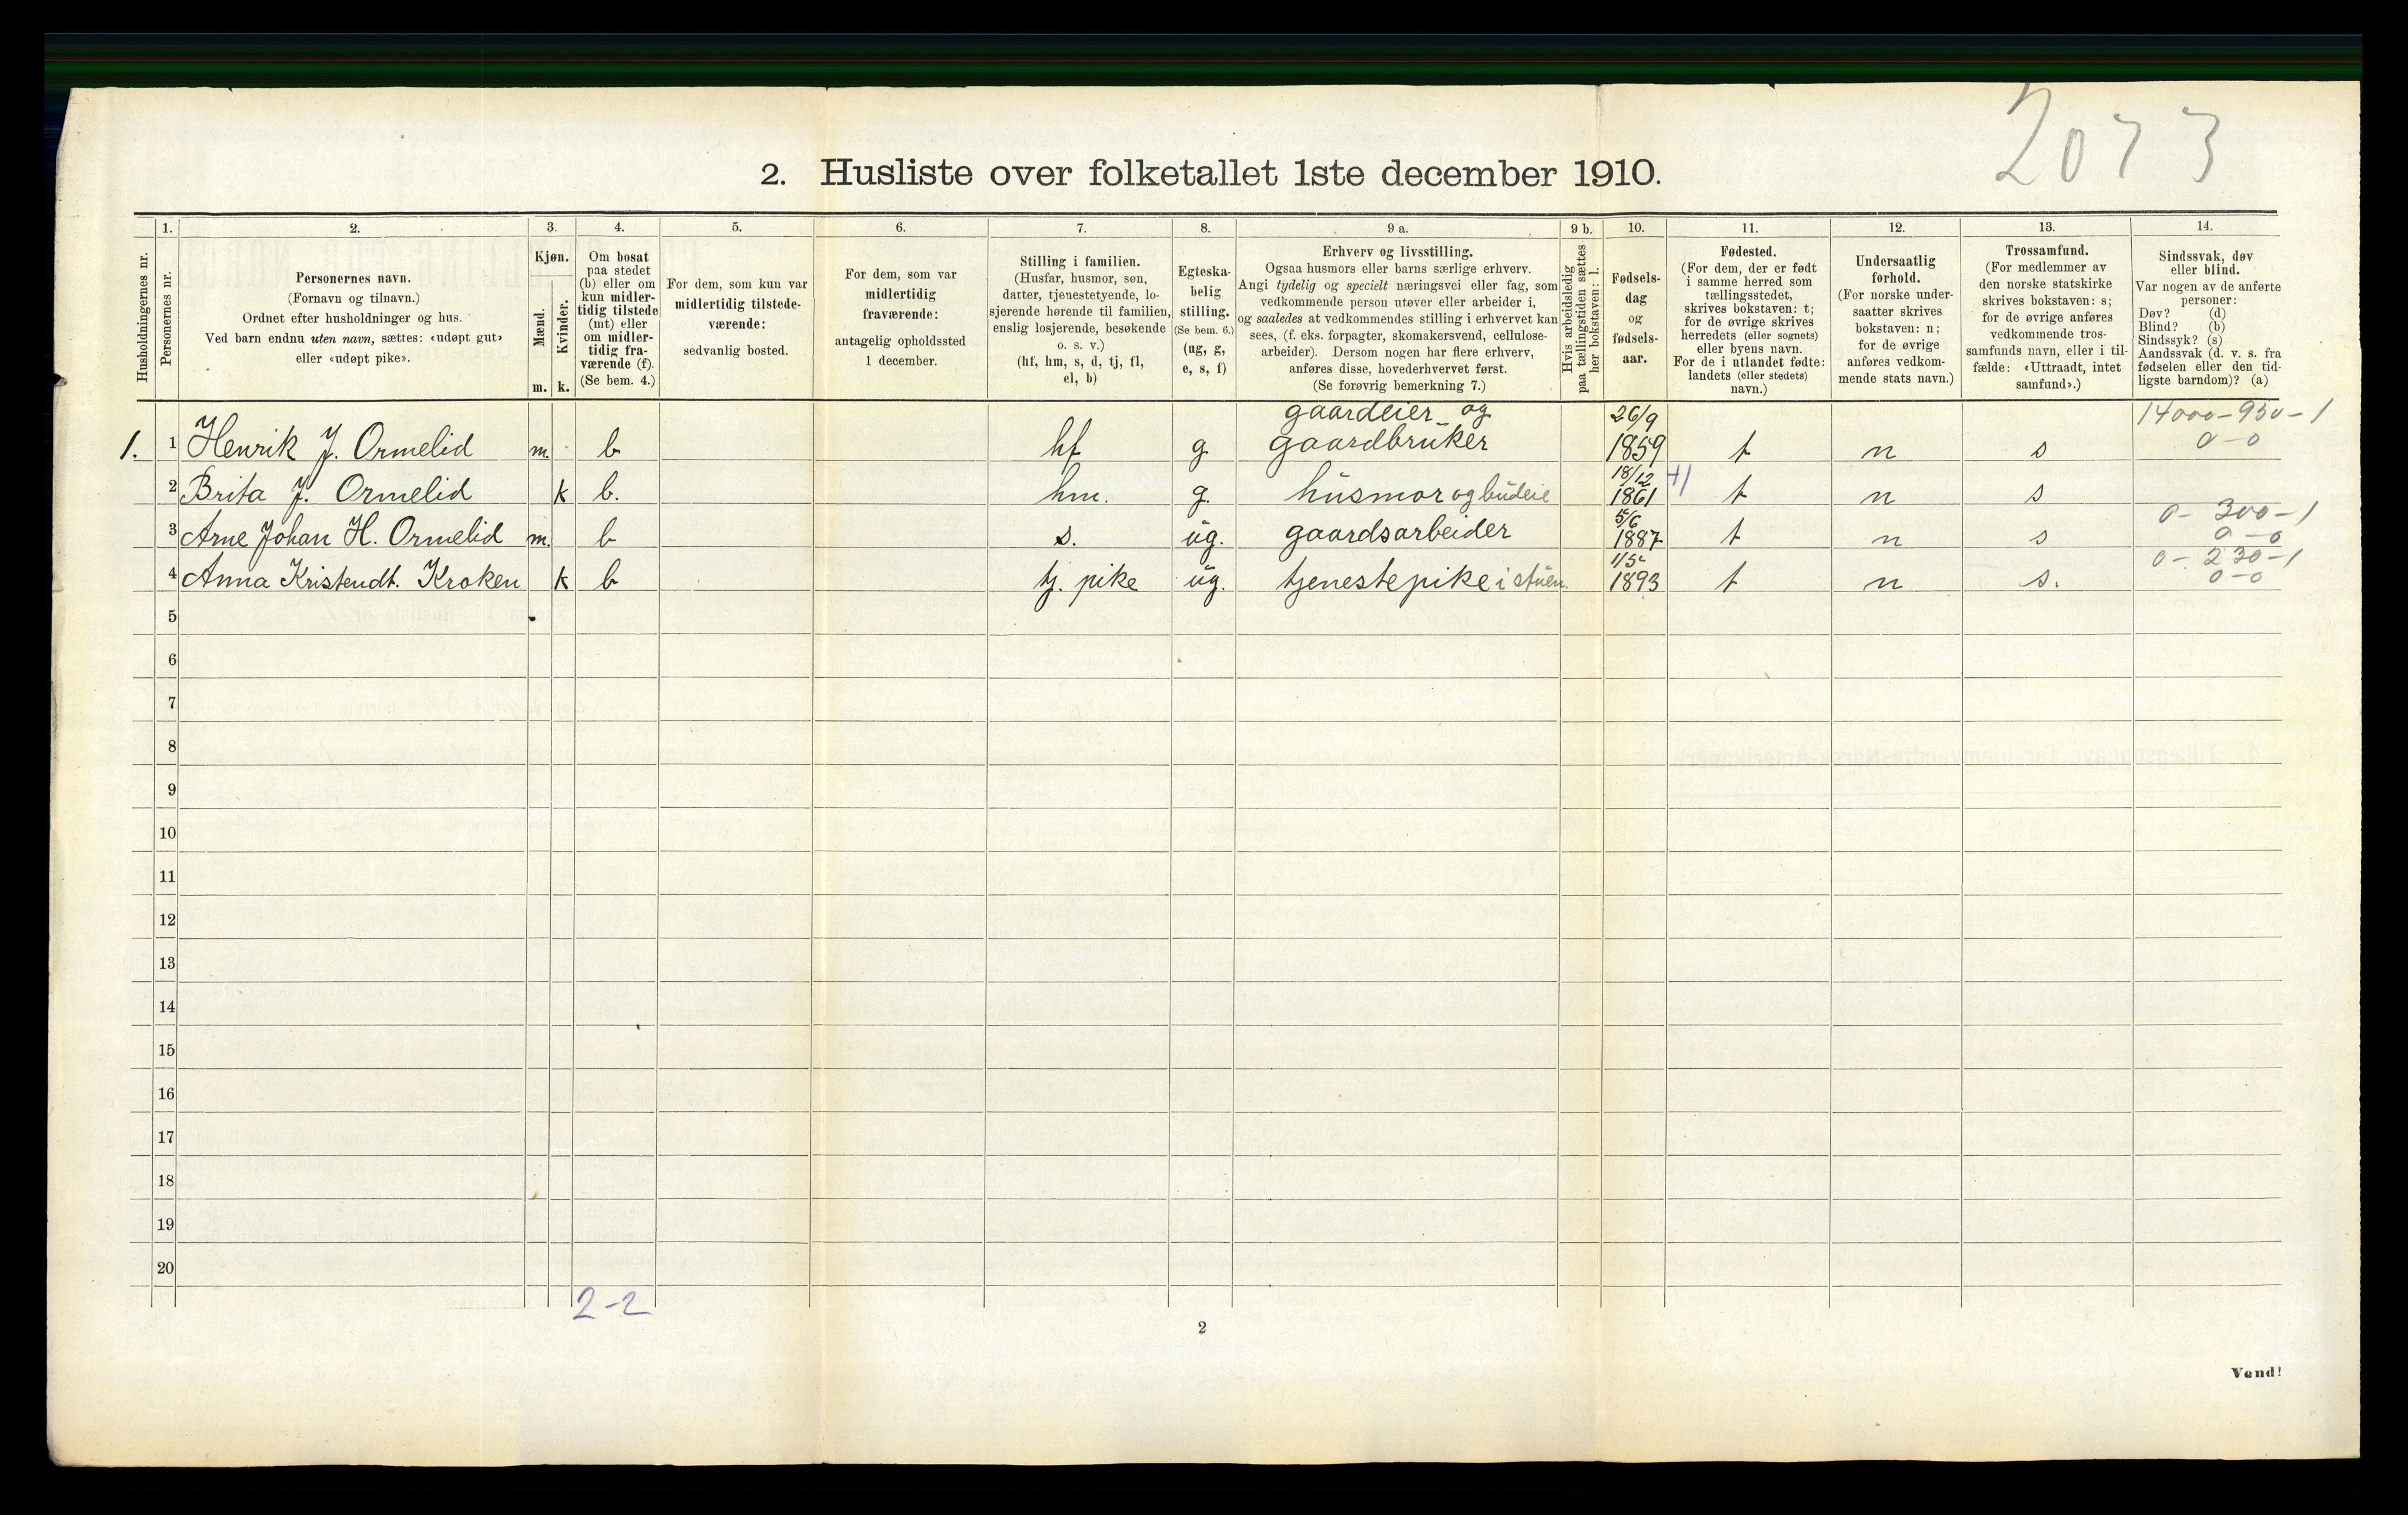 2073
2. Husliste over folketallet 1ste december 1910.
Husholdningernes nr.
1. Personernes nr.
2. Personernes navn.
(Fornavn og tilnavn.)
Ordnet efter husholdninger og hus.
Ved barn endnu uten navn, sættes: «udøpt gut»
eller «udøpt pike».
3. Kjøn.
Mænd. m.
Kvinder. k.
4. Om bosat
paa stedet
(b) eller om
kun midler-
tidig tilstede
(mt) eller
om midler-
tidig fra-
værende (f).
(Se bem. 4.)
5. For dem, som kun var
midlertidig tilstede-
værende:
sedvanlig bosted.
6. For dem, som var
midlertidig
fraværende:
antagelig opholdssted
1 december.
7. Stilling i familien.
(Husfar, husmor, søn,
datter, tjenestetyende, lo-
sjerende hørende til familien,
enslig losjerende, besøkende
o. s. v.)
(hf, hm, s, d, tj, fl,
el, b)
8. Egteska-
belig
stilling.
(Se bem. 6.)
(ug, g,
e, s, f)
9 a. Erhverv og livsstilling.
Ogsaa husmors eller barns særlige erhverv.
Angi tydelig og specielt næringsvei eller fag, som
vedkommende person utøver eller arbeider i,
og saaledes at vedkommendes stilling i erhvervet kan
sees, (f. eks. forpagter, skomakersvend, cellulose-
arbeider). Dersom nogen har flere erhverv,
anføres disse, hovederhvervet først.
(Se forøvrig bemerkning 7.)
9 b. Hvis arbeidsledig
paa tællingstiden sættes
her bokstaven: l.
10. Fødsels-
dag
og
fødsels-
aar.
11. Fødested.
(For dem, der er født
i samme herred som
tællingsstedet,
skrives bokstaven: t;
for de øvrige skrives
herredets (eller sognets)
eller byens navn.
For de i utlandet fødte:
landets (eller stedets)
navn.)
12. Undersaatlig
forhold.
(For norske under-
saatter skrives
bokstaven: n;
for de øvrige
anføres vedkom-
mende stats navn.)
13. Trossamfund.
(For medlemmer av
den norske statskirke
skrives bokstaven: s;
for de øvrige anføres
vedkommende tros-
samfunds navn, eller i til-
fælde: «Uttraadt, intet
samfund».)
14. Sindssvak, døv
eller blind.
Var nogen av de anførte
personer:
Døv? (d)
Blind? (b)
Sindssyk? (s)
Aandssvak (d. v. s. fra
fødselen eller den tid-
ligste barndom)? (a)
gaardeier og 26/9 14000-950-1
1. 1 Henrik J. Ormelid m. b hf g gaardbruker 1859 t n s 0-0
18/12
2 Brita J. Ormelid k b. hm. g. husmor og budeie 1861 t n s
5/6 0-300-1
3 Arne Johan H. Ormelid m. b s. ug. gaardsarbeider 1887 t n s 0-0
1/5 0-230-1
4 Anna Kristendt. Kroken k b tj. pike ug. tjenestepike i stuen. 1893 t n s. 0-0
5
6
7
8
9
10
11
12
13
14
15
16
17
18
19
20
2-2
2
Vend!